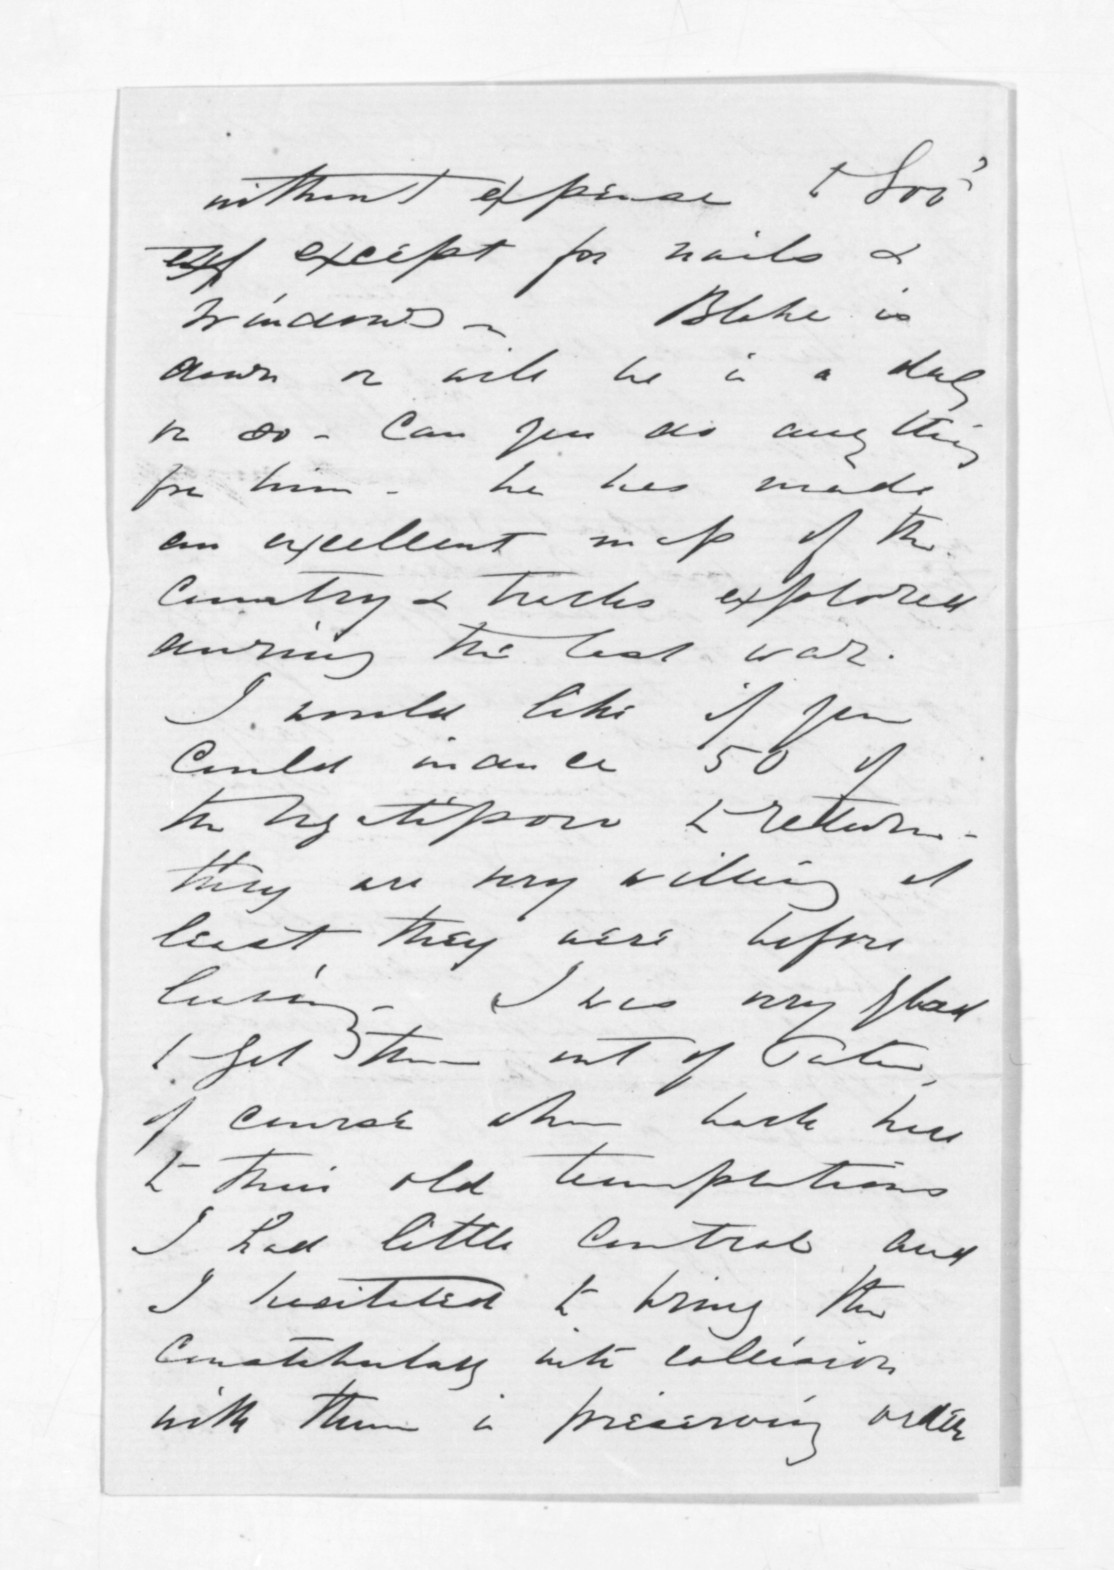 without expense to Gov't
exp except for nails &
windows - Blake is
down or will be in a day
or so - Can you do any thing
for him - he has made
an excellent map of the
Country & tracks explored
during the last war.
I would like if you
could induce 50 of
the Ngatiporou to return -
they are very willing at
least they were before
leaving - I was very glad
to get them out of Patea,
of course when back here
to their old temptations
I had little control and
I hesitated to bring the
Constabulary into collision
with them in preserving order